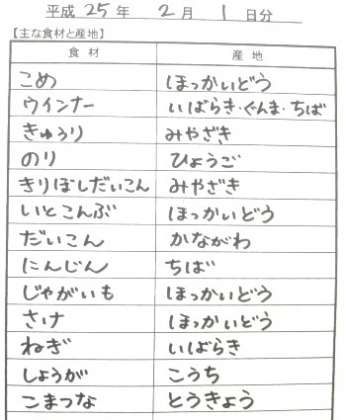 平成 25 年 2 月 1 日分
【主な食材と産地】
食材 産地
こめ ほっかいどう
ウインナー いばらき・ぐんま・ちば
きゅうり みやざき
のり ひょうご
きりぼしだいこん みやざき
いとこんぶ ほっかいどう
だいこん かながわ
にんじん ちば
じゃがいも ほっかいどう
さけ ほっかいどう
ねぎ いばらき
しょうが こうち
こまつな とうきょう